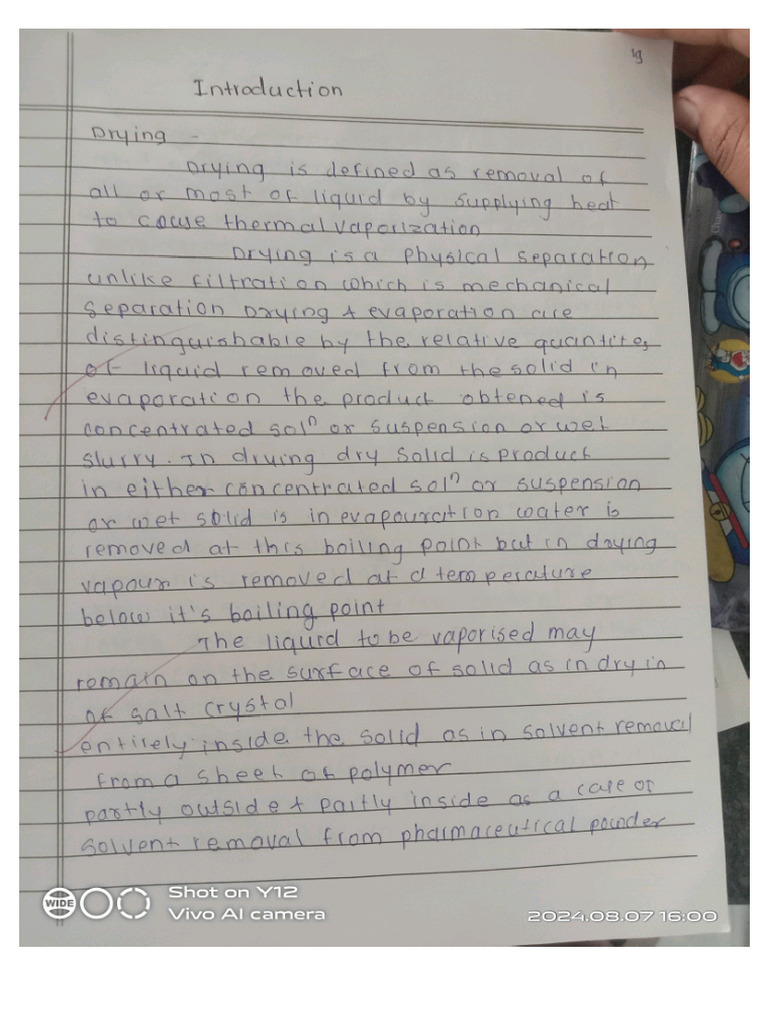 19
Introduction
Drying -
Drying is defined as removal of
all or most of liquid by supplying heat
to cause thermal vaporization
Drying is a physical separation
unlike filtration which is mechanical
separation Drying & evaporation are
distinguishable by the relative quantites
of liquid removed from the solid in
evaporation the product obtened is
concentrated solⁿ or suspension or wet
slurry. In druing dry solid is product
in either concentrated solⁿ or suspension
or wet solid is in evapouration water is
removed at this boiling point but in drying
vapour is removed at a temperature
below it's boiling point
The liquid to be vaporised may
remain on the surface of solid as in dry in
of salt crystal
entirely inside the solid as in solvent removal
from a sheet of polymer
partly outside & partly inside as a case of
solvent removal from pharmaceutical powder
WIDE
Shot on Y12
Vivo AI camera
2024.08.07 16:00